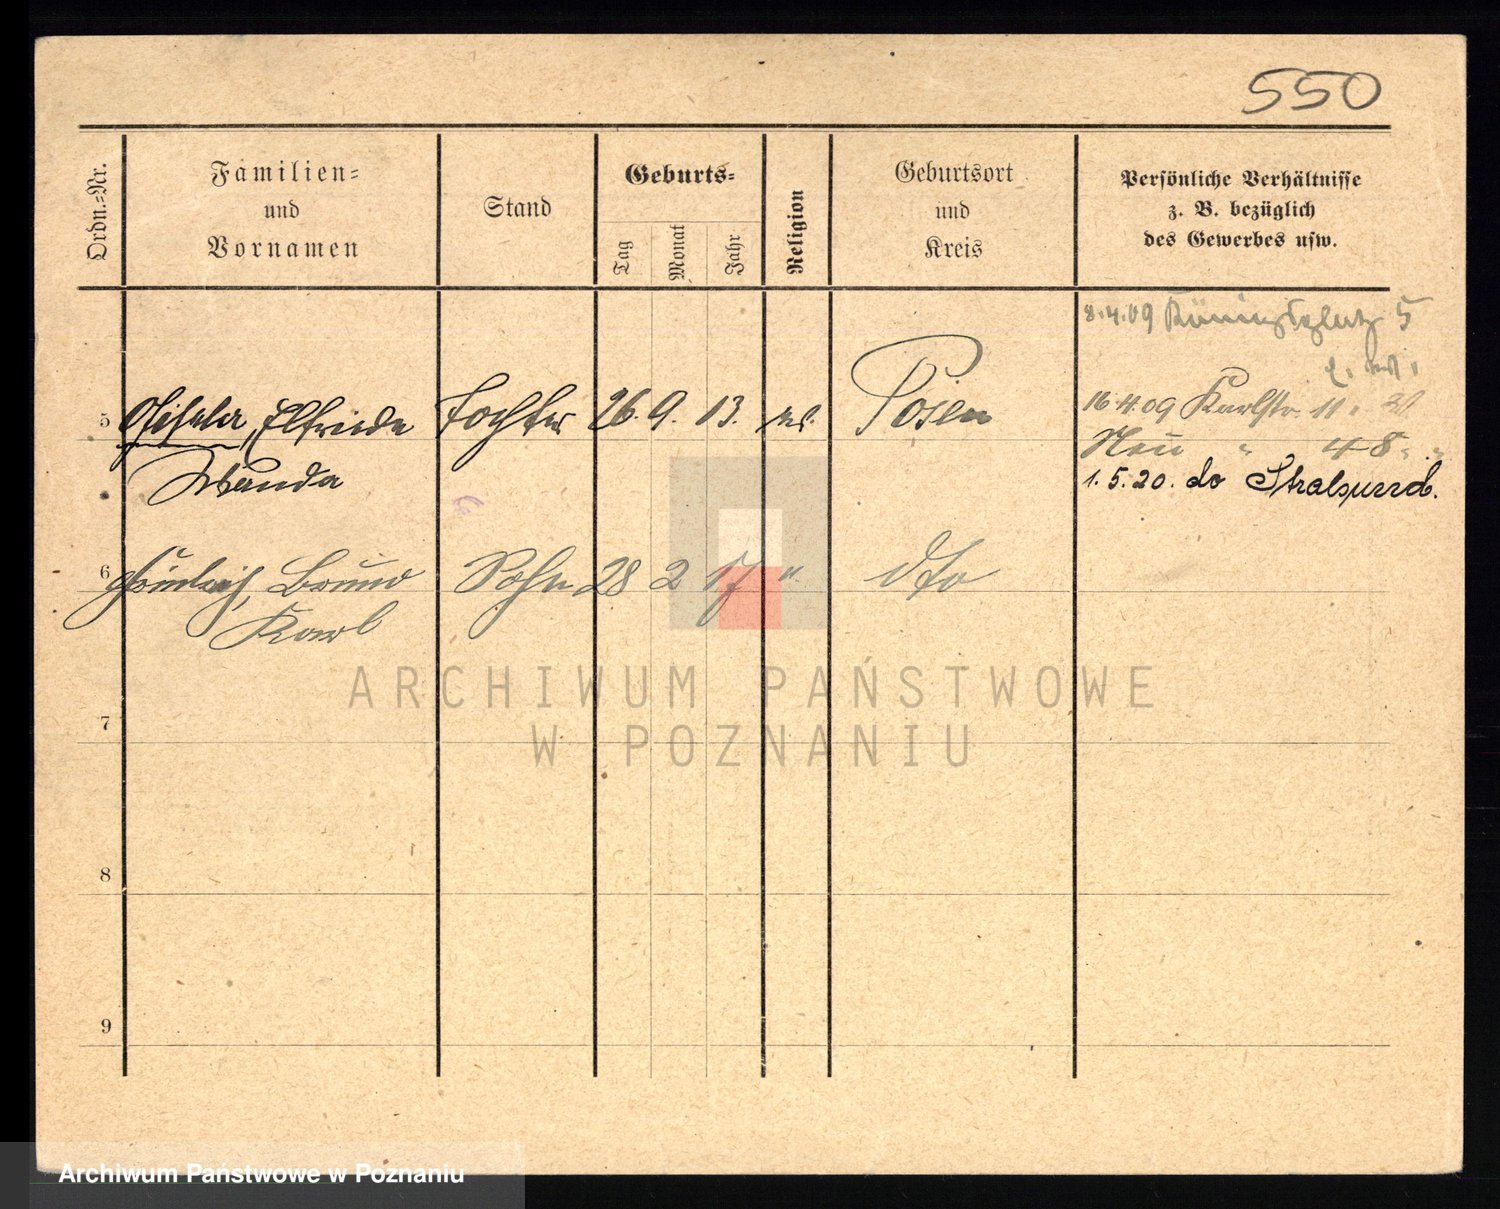 550
Ordn.-Nr.
Familien-
und
Vornamen
Stand
Geburts-
Tag
Monat
Jahr
Religion
Geburtsort
und
Kreis
Persönliche Verhältnisse
z. B. bezüglich
des Gewerbes usw.
8.4.09 Königsplatz 5
16.4.09 Karlstr. 11.
Neu " 48. "
1.5.20. do Stralsund.
5 Elfriede Tochter 26. 9. 13. ev. Posen
Wanda
6 Bruno Sohn 28 2 17 " dto
Karl
7
8
9
ARCHIWUM PAŃSTWOWE
W POZNANIU
Archiwum Państwowe w Poznaniu